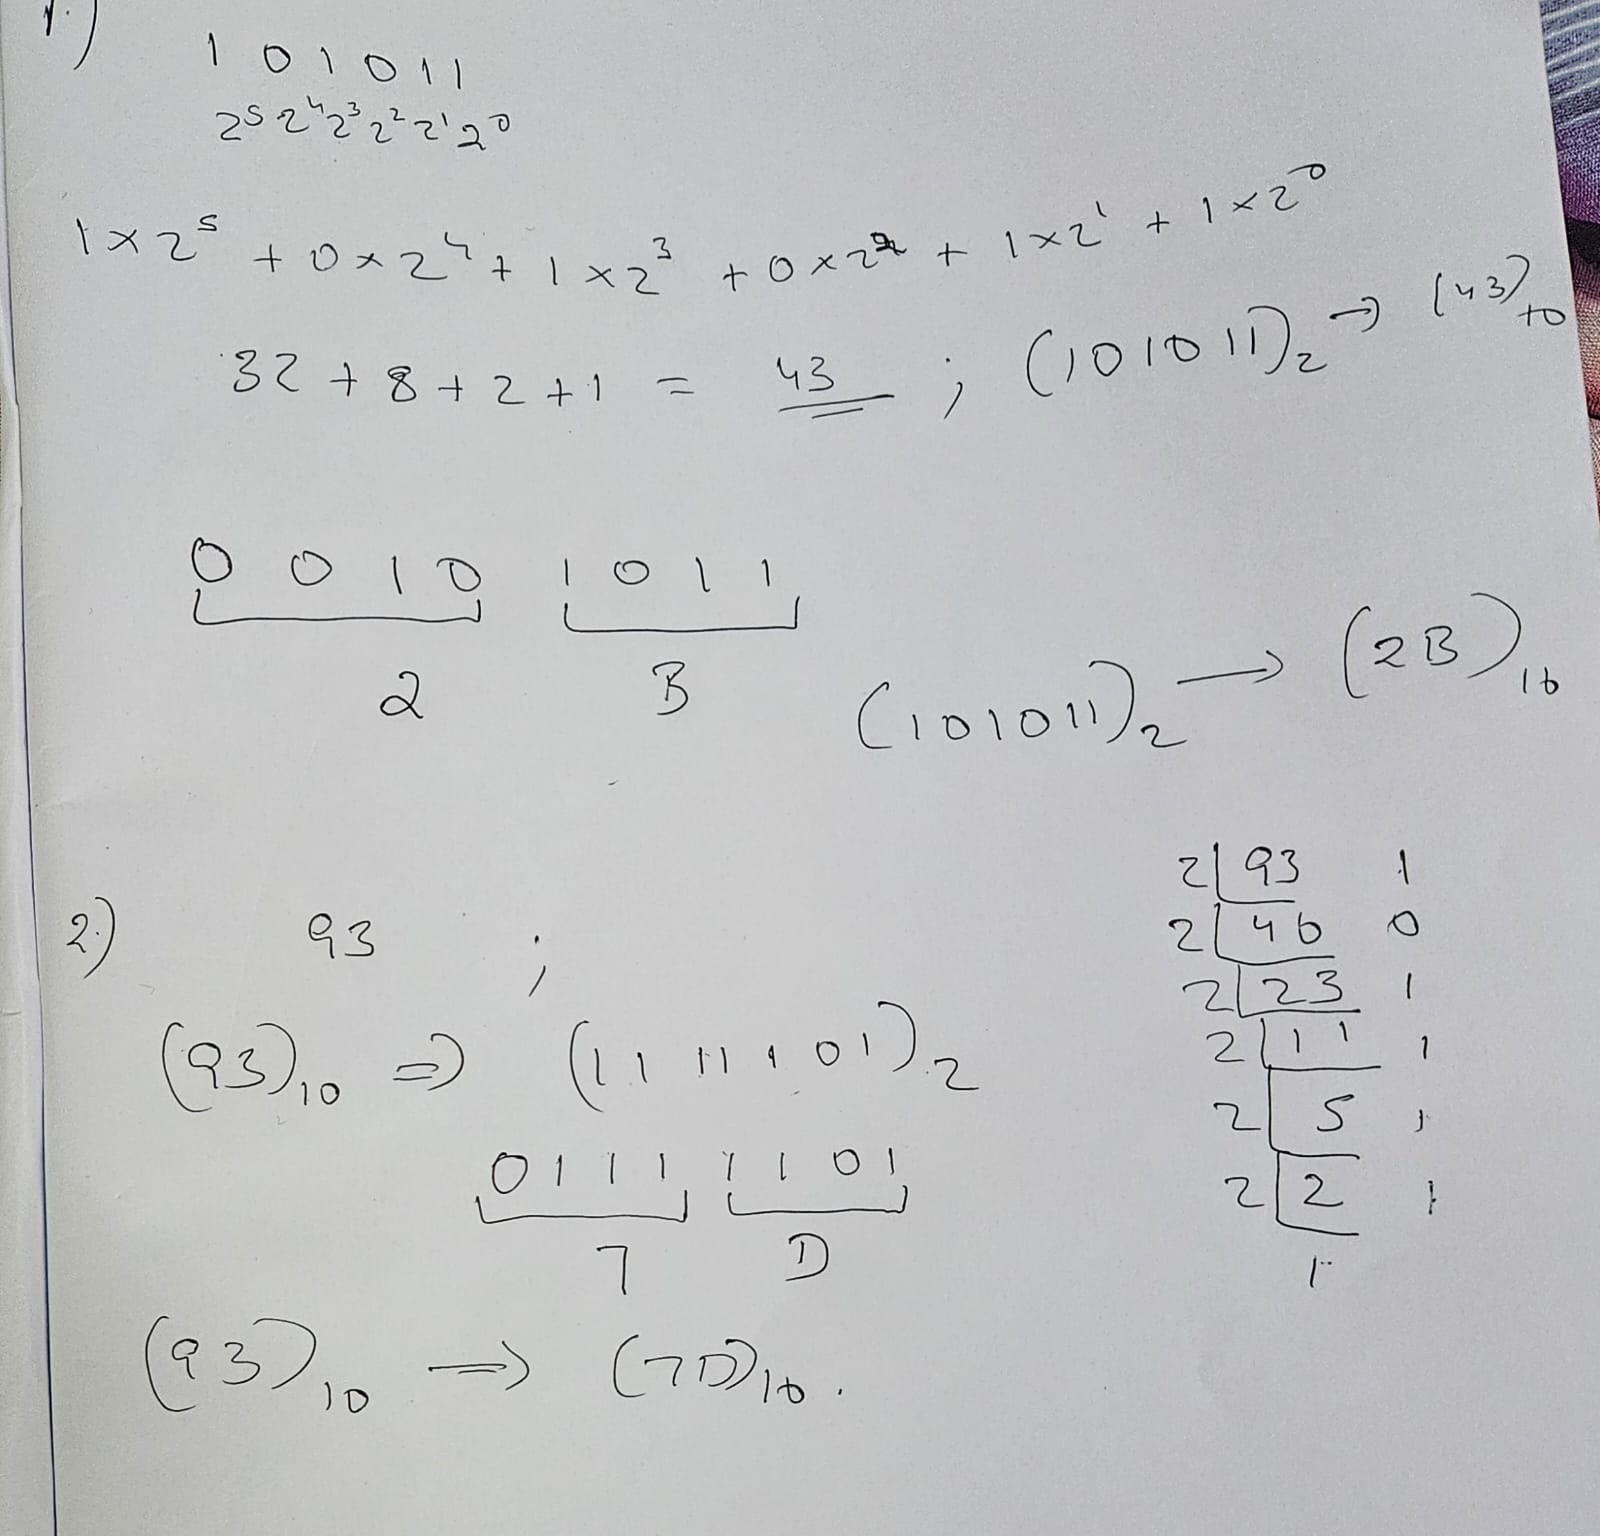 1.)
1 0 1 0 1 1
2⁵ 2⁴ 2³ 2² 2¹ 2⁰
1 × 2⁵ + 0 × 2⁴ + 1 × 2³ + 0 × 2² + 1 × 2¹ + 1 × 2⁰
32 + 8 + 2 + 1 = 43 ; (101011)₂ → (43)₁₀
0 0 1 0 1 0 1 1
2 B
(101011)₂ → (2B)₁₆
2.) 93 ;
(93)₁₀ ⇒ (1111101)₂
0 1 1 1 1 1 0 1
7 D
(93)₁₀ ⇒ (7D)₁₆.
2 | 93 1
2 | 46 0
2 | 23 1
2 | 11 1
2 | 5 1
2 | 2 1
1